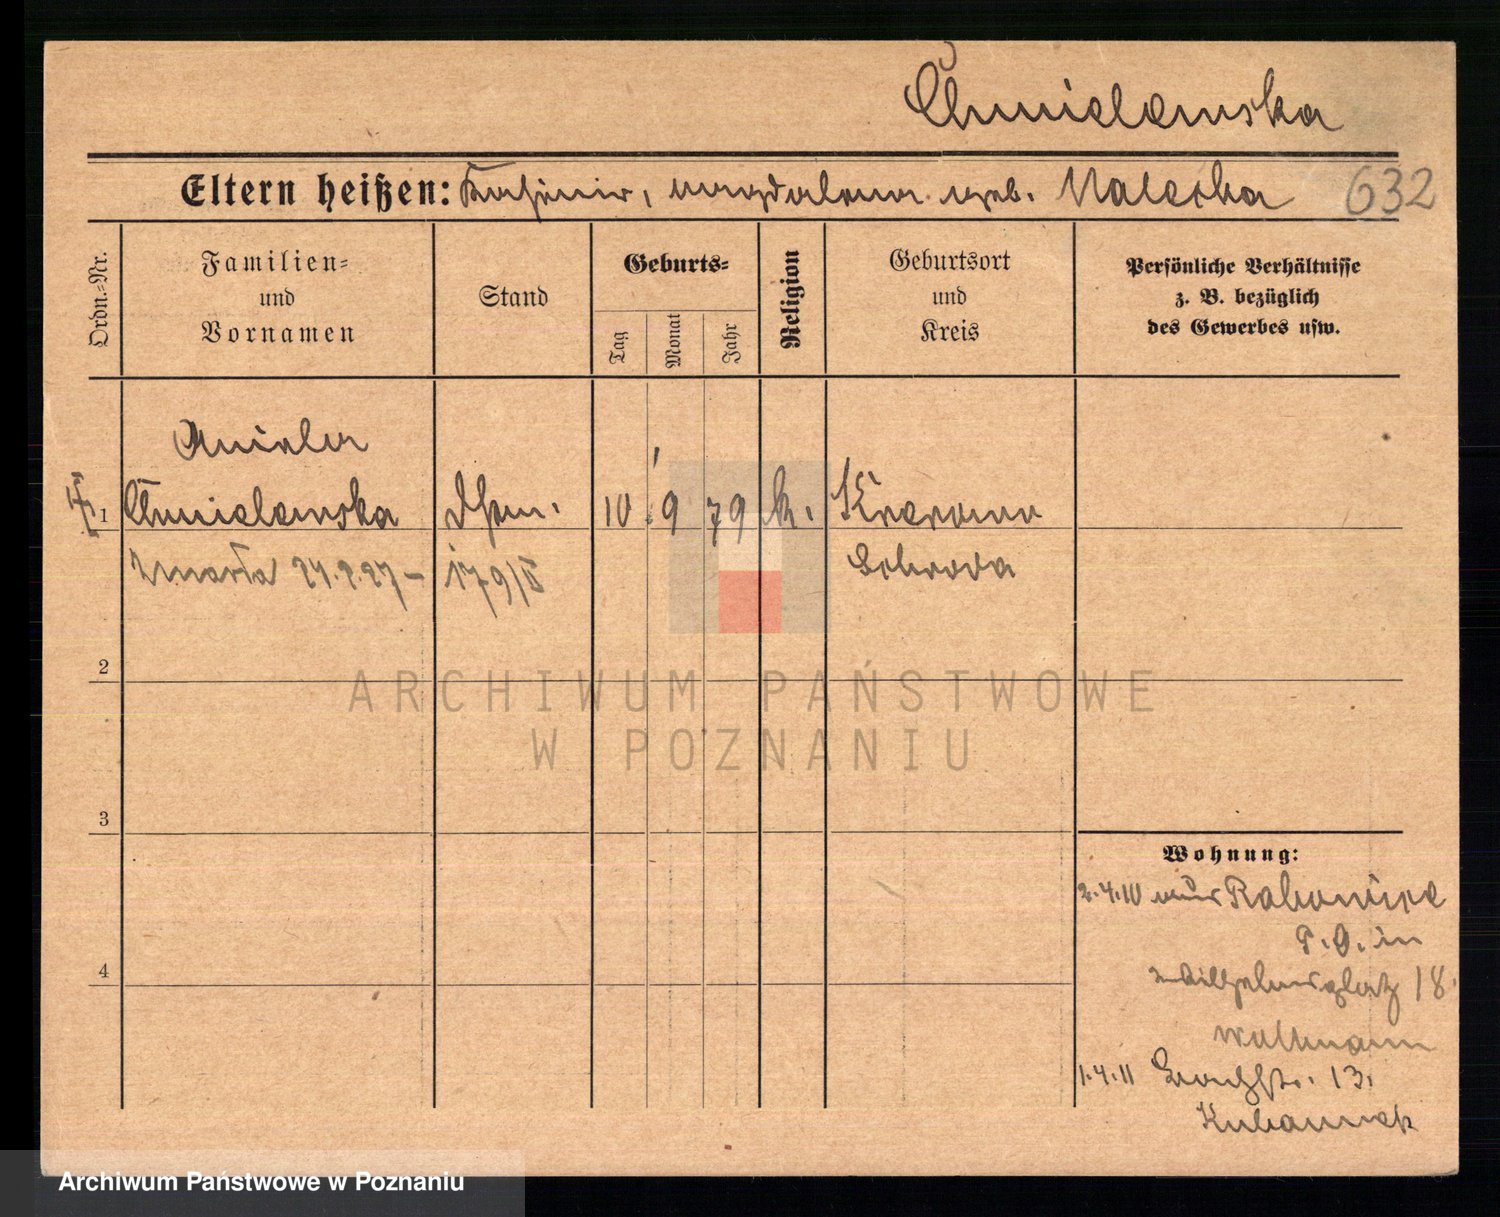 Chmielewska
Eltern heißen: Kasimir, Magdalena geb. Maleska 632
Ordn.-Nr.
Familien-
und
Vornamen
Stand
Geburts-
Tag
Monat
Jahr
Religion
Geburtsort
und
Kreis
Persönliche Verhältnisse
z. B. bezüglich
des Gewerbes usw.
Aniela
1 Chmielewska 10 9 79 k.
zmarła 179/II
Schroda
2
3
4
Wohnung:
2.4.10 aus
P. O. in
Wilhelmsplatz 18.
Wollmann
1.4.11 13.
ARCHIWUM PAŃSTWOWE
W POZNANIU
Archiwum Państwowe w Poznaniu